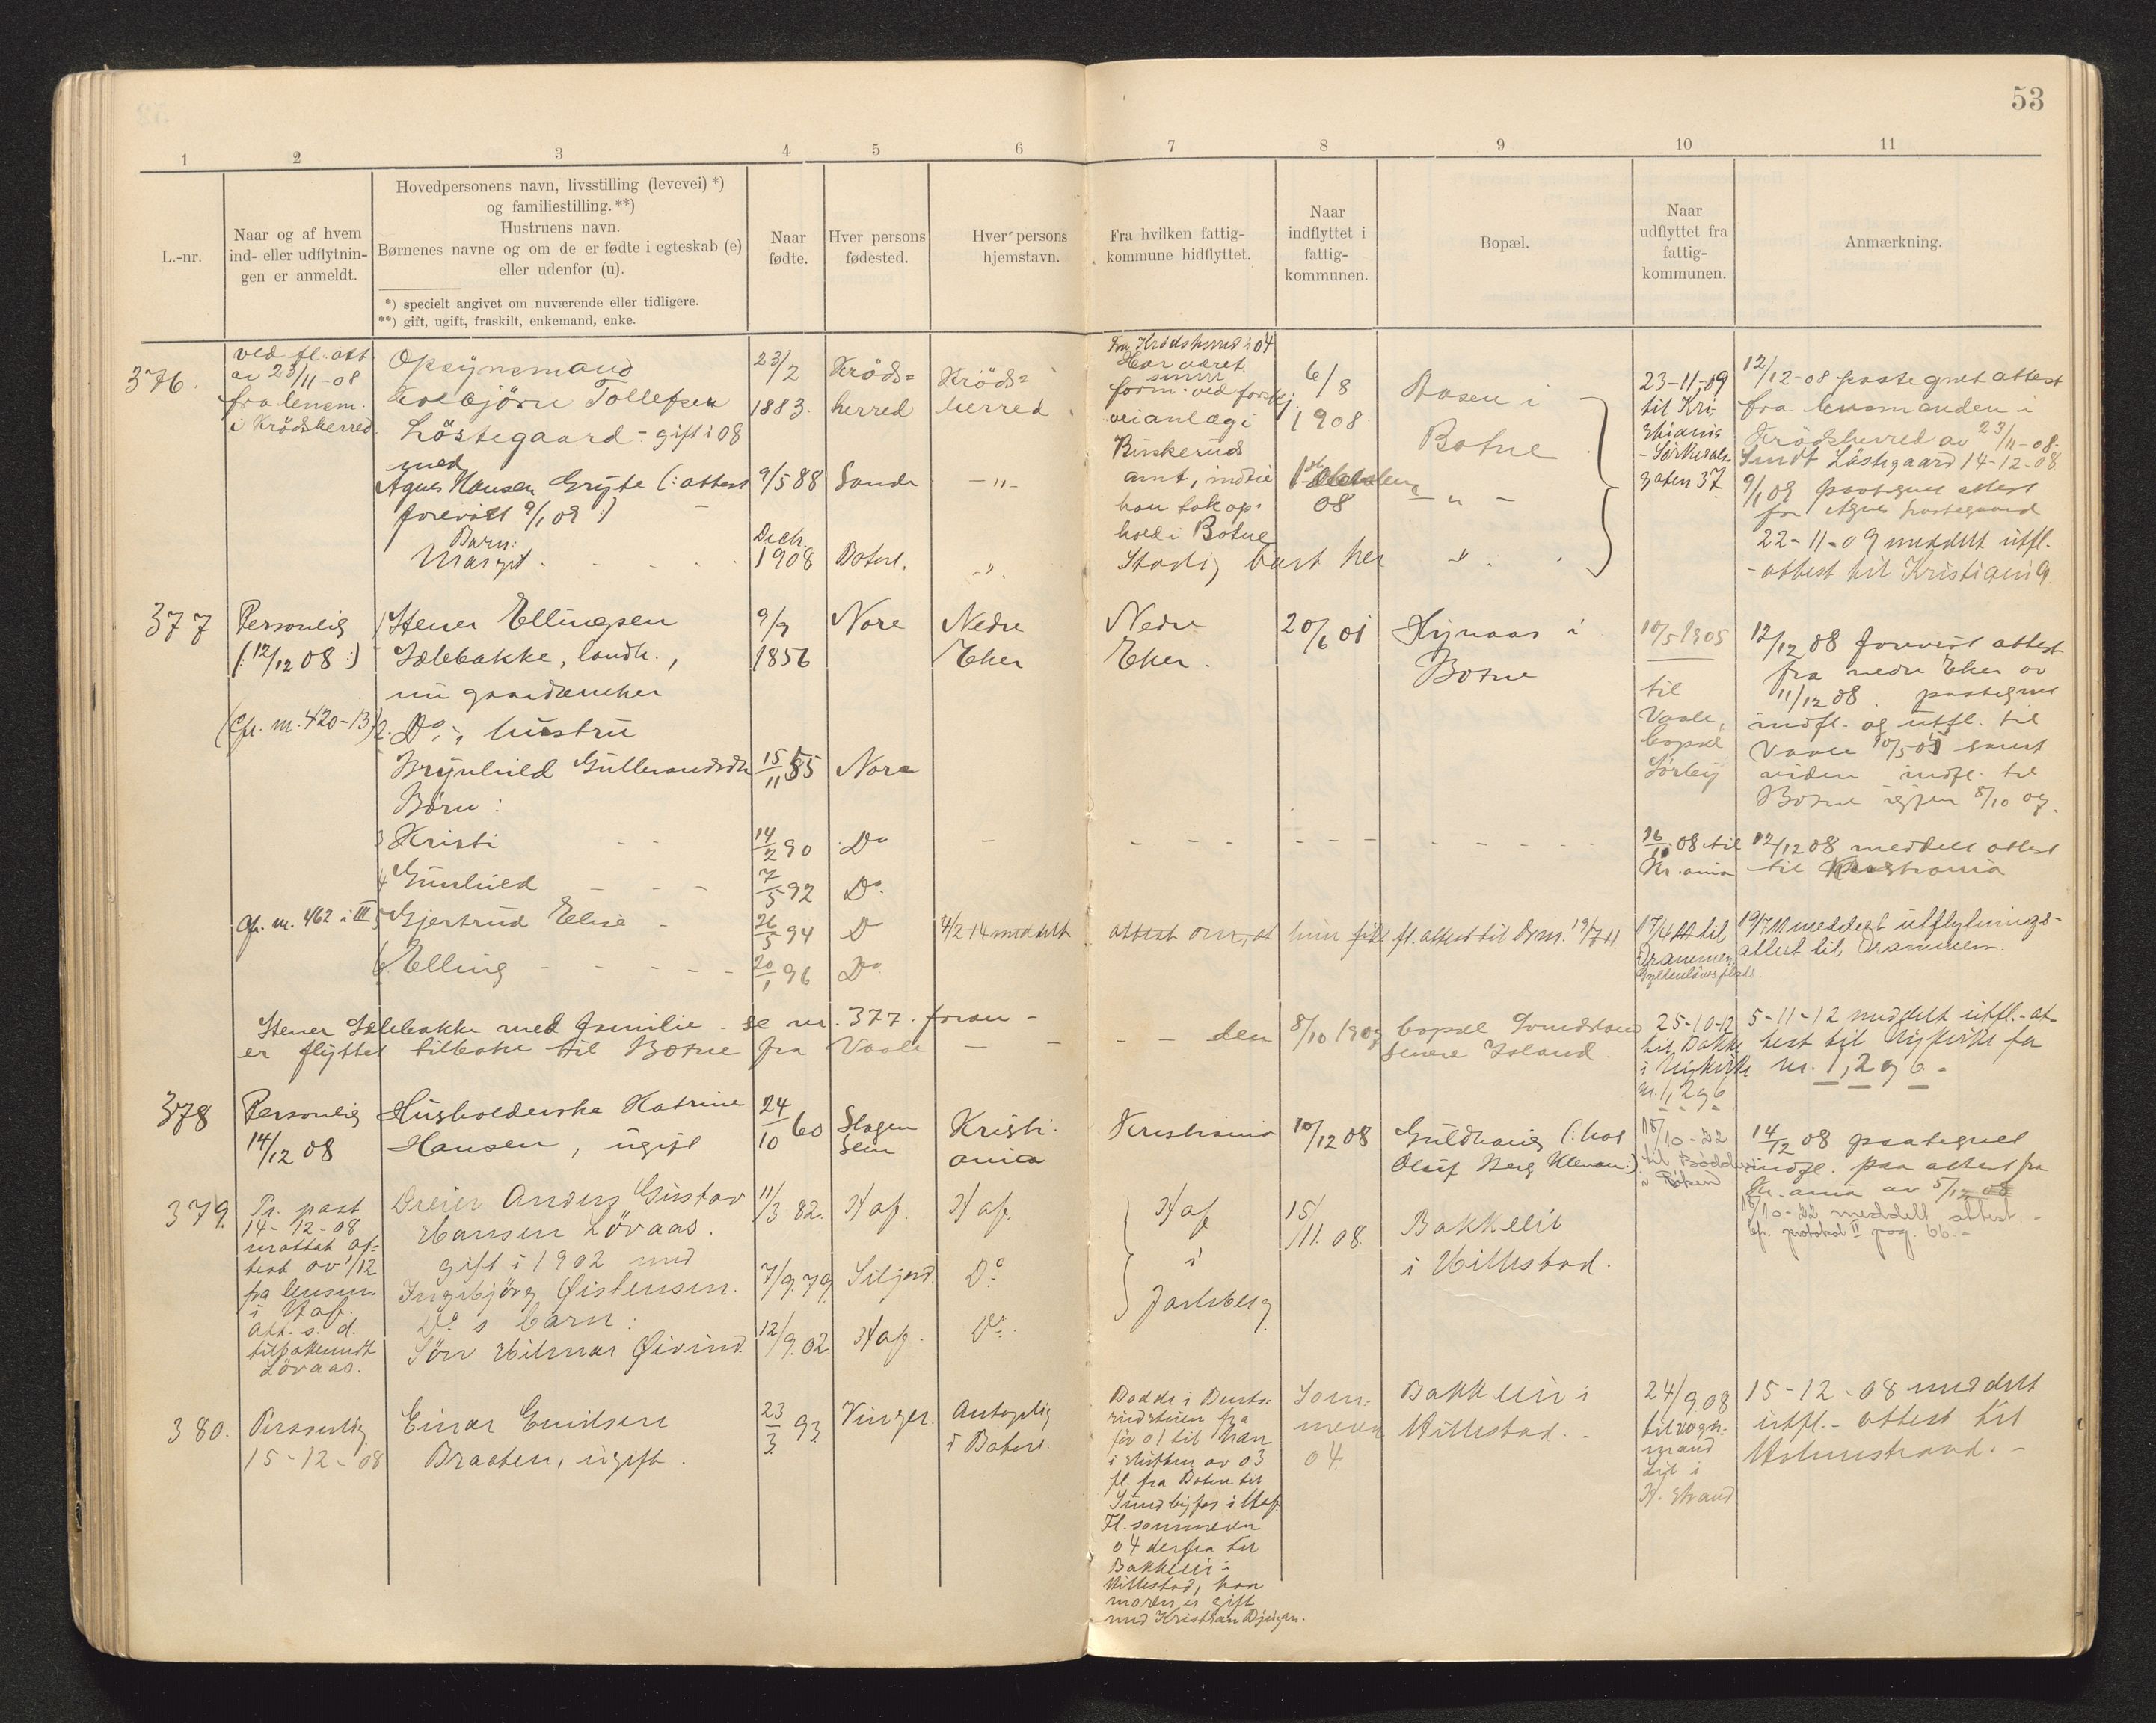 53
1 2 3 4 5 6 7 8 9 10 11
L.-nr.
Naar og af hvem
ind- eller udflytnin-
gen er anmeldt.
Hovedpersonens navn, livsstilling (levevei) *)
og familiestilling. **)
Hustruens navn.
Børnenes navne og om de er fødte i egteskab (e)
eller udenfor (u).
*) specielt angivet om nuværende eller tidligere.
**) gift, ugift, fraskilt, enkemand, enke.
Naar
fødte.
Hver persons
fødested.
Hver persons
hjemstavn.
Fra hvilken fattig-
kommune hidflyttet.
Naar
indflyttet i
fattig-
kommunen.
Bopæl.
Naar
udflyttet fra
fattig-
kommunen.
Anmærkning.
376.
ved fl. att
av 23/11-08
fra lensm.
i Krødsherred.
Opsynsmand
Tollefsen
Löstegaard - gift i 08
med
Agnes Hansen Gryte (: attest
forevist 9/1 09 :)
Barn:
Margit
23/2
1883.
9/5 88
Decb.
1908
Kröds=
herred
Sande
Botne.
Kröds=
herred
- " -
- " -
Fra Krödsherred i 04
Har været
form. ved
veianlæg i
Buskeruds
amt, indtil
han tok op-
hold i Botne
Stadig boet her
6/8
1908.
08
Aasen i
Botne
- " -
"
23-11-09
til Kri-
stiania
- Sörkedals-
gaten 37.
12/12-08 paategnet attest
fra lensmanden i
Krödsherred av 23/11-08.
Sendt Löstegaard 14-12-08.
9/1 09 paategnet attest
for Agnes Löstegaard
22-11-09 meddelt utfl.
-attest til Kristiania.
377
Personlig
(: 12/12 08 :)
(Cfr. nr. 420-13)
1 Stener Ellingsen
Sælebakke, landh.,
nu gaardbruker
2. Do, s hustru
Brynhild Gulbrandsdtr
Børn:
3 Kristi
4 Gunhild
5 Gjertrud Elise
6 Elling
9/9
1856
15/11 55
14/2 90
7/5 92
26/5 94
20/1 96
Nore
Nore
Do
Do
Do
Do
Nedre
Eker
Nedre
Eker.
20/6 01
Hynaas i
Botne
10/5 1905
til
Vaale,
bopæl
Sørby
12/12 08 forevist attest
fra nedre Eker av
11/12 08. paategnet
indfl. og utfl. til
Vaale 10/5 05 samt
viden indfl. til
Botne igjen 8/10 07.
16/11 08 til
Kr.ania
12/12 08 meddelt attest
til Kristiania
Cfr. nr. 462 i III
4/2 14 meddelt attest om, at hun fik fl. attest til Drm. 19/7 11.
17/4 11 til
Drammen,
19/7 11 meddelt utflytnings-
attest til Drammen.
Stener Sælebakke med familie - se nr. 377. foran -
er flyttet tilbake til Botne fra Vaale - - - - den 8/10 1907 bopæl
senere Island.
25-10-12
til Bakke
i Nykirke
nr. 1, 2 og 6
5-11-12 meddelt utfl.-at-
test til Nykirke for
nr. 1, 2 og 6.
378
Personlig
14/12 08
Husholderske Katrine
Hansen, ugift
24/10 60
Slagen
Sem
Kristi-
ania
Kristiania
10/12 08
Guldhaug (: hos
Oluf Berg Klevan :)
18/10-22
14/12 08 paategnet
indfl. paa attest fra
Kr.ania av 5/12 08
18/10-22 meddelt attest -
Cfr. protokol II pag. 66.-
379.
Pr. post
14-12-08
mottat at-
test av 1/12
fra lensm.
i Hof.
Att. s. d.
tilbakesendt
Lövaas.
Dreier Anders Gustav
Hansen Lövaas.
gift i 1902 med
Ingebjörg Øistensen.
Do s barn:
Sön Hilmar Øivind.
11/3 82.
7/9. 79.
12/9. 02.
Hof.
Siljord.
Hof.
Hof.
Do
Do
Hof
i
Jarlsberg
15/11. 08.
Bakkelii
i Hillestad.
380.
Personlig
15-12-08
Einar Emilsen
Braaten, ugift.
23/3 93.
Vinger.
Antagelig
i Botne.
Bodde i
fra
för 01 til han
i slutten av 03
fl. fra Botne til
Sundbyfos i Hof.
Fl. sommeren
04 derfra til
Bakkelii i
Hillestad, hvor
moren er gift
med Kristian
Som-
meren
04.
Bakkelii i
Hillestad. -
24/9. 08
til
mand
Lie i
H.strand
15-12-08 meddelt
utfl.- attest til
Holmestrand. -